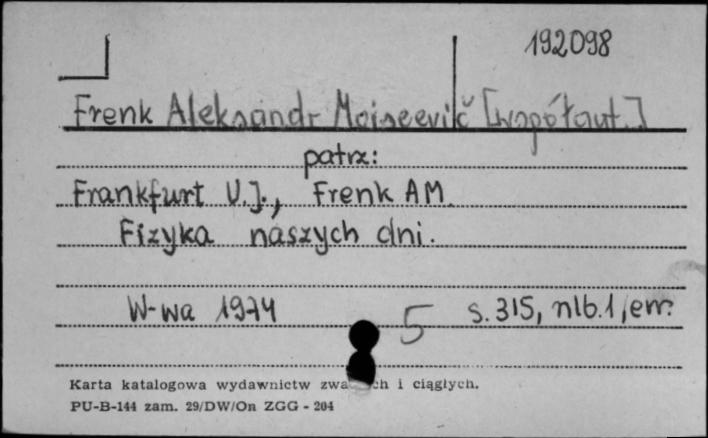 192098
Frenk Aleksandr Moiseevič [współaut.]
patrz:
Frankfurt U.J., Frenk AM.
Fizyka naszych dni.
W-wa 1974
5
s. 315, nlb. 1, err.
Karta katalogowa wydawnictw i ciągłych.
PU-B-144 zam. 29/DW/On ZGG - 204